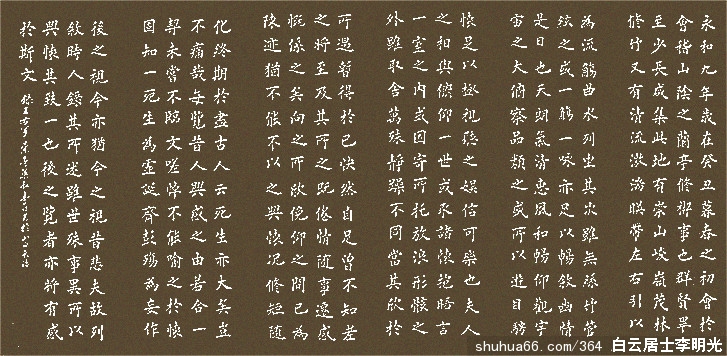 永和九年歲在癸丑暮春之初會於
會稽山陰之蘭亭修禊事也群賢畢
至少長咸集此地有崇山峻嶺茂林
修竹又有清流激湍映帶左右引以
為流觴曲水列坐其次雖無絲竹管
絃之盛一觴一詠亦足以暢敘幽情
是日也天朗氣清惠風和暢仰觀宇
宙之大俯察品類之盛所以遊目騁
懷足以極視聽之娛信可樂也夫人
之相與俯仰一世或取諸懷抱晤言
一室之內或因寄所托放浪形骸之
外雖取舍萬殊靜躁不同當其欣於
所遇暫得於己快然自足曾不知老
之將至及其所之既倦情隨事遷感
慨係之矣向之所欣俛仰之間已為
陳迹猶不能不以之興懷況修短隨
化終期於盡古人云死生亦大矣豈
不痛哉每覽昔人興感之由若合一
契未嘗不臨文嗟悼不能喻之於懷
固知一死生為虛誕齊彭殤為妄作
後之視今亦猶今之視昔悲夫故列
敘時人錄其所述雖世殊事異所以
興懷其致一也後之覽者亦將有感
於斯文
shuhua66.com/364 白云居士李明光